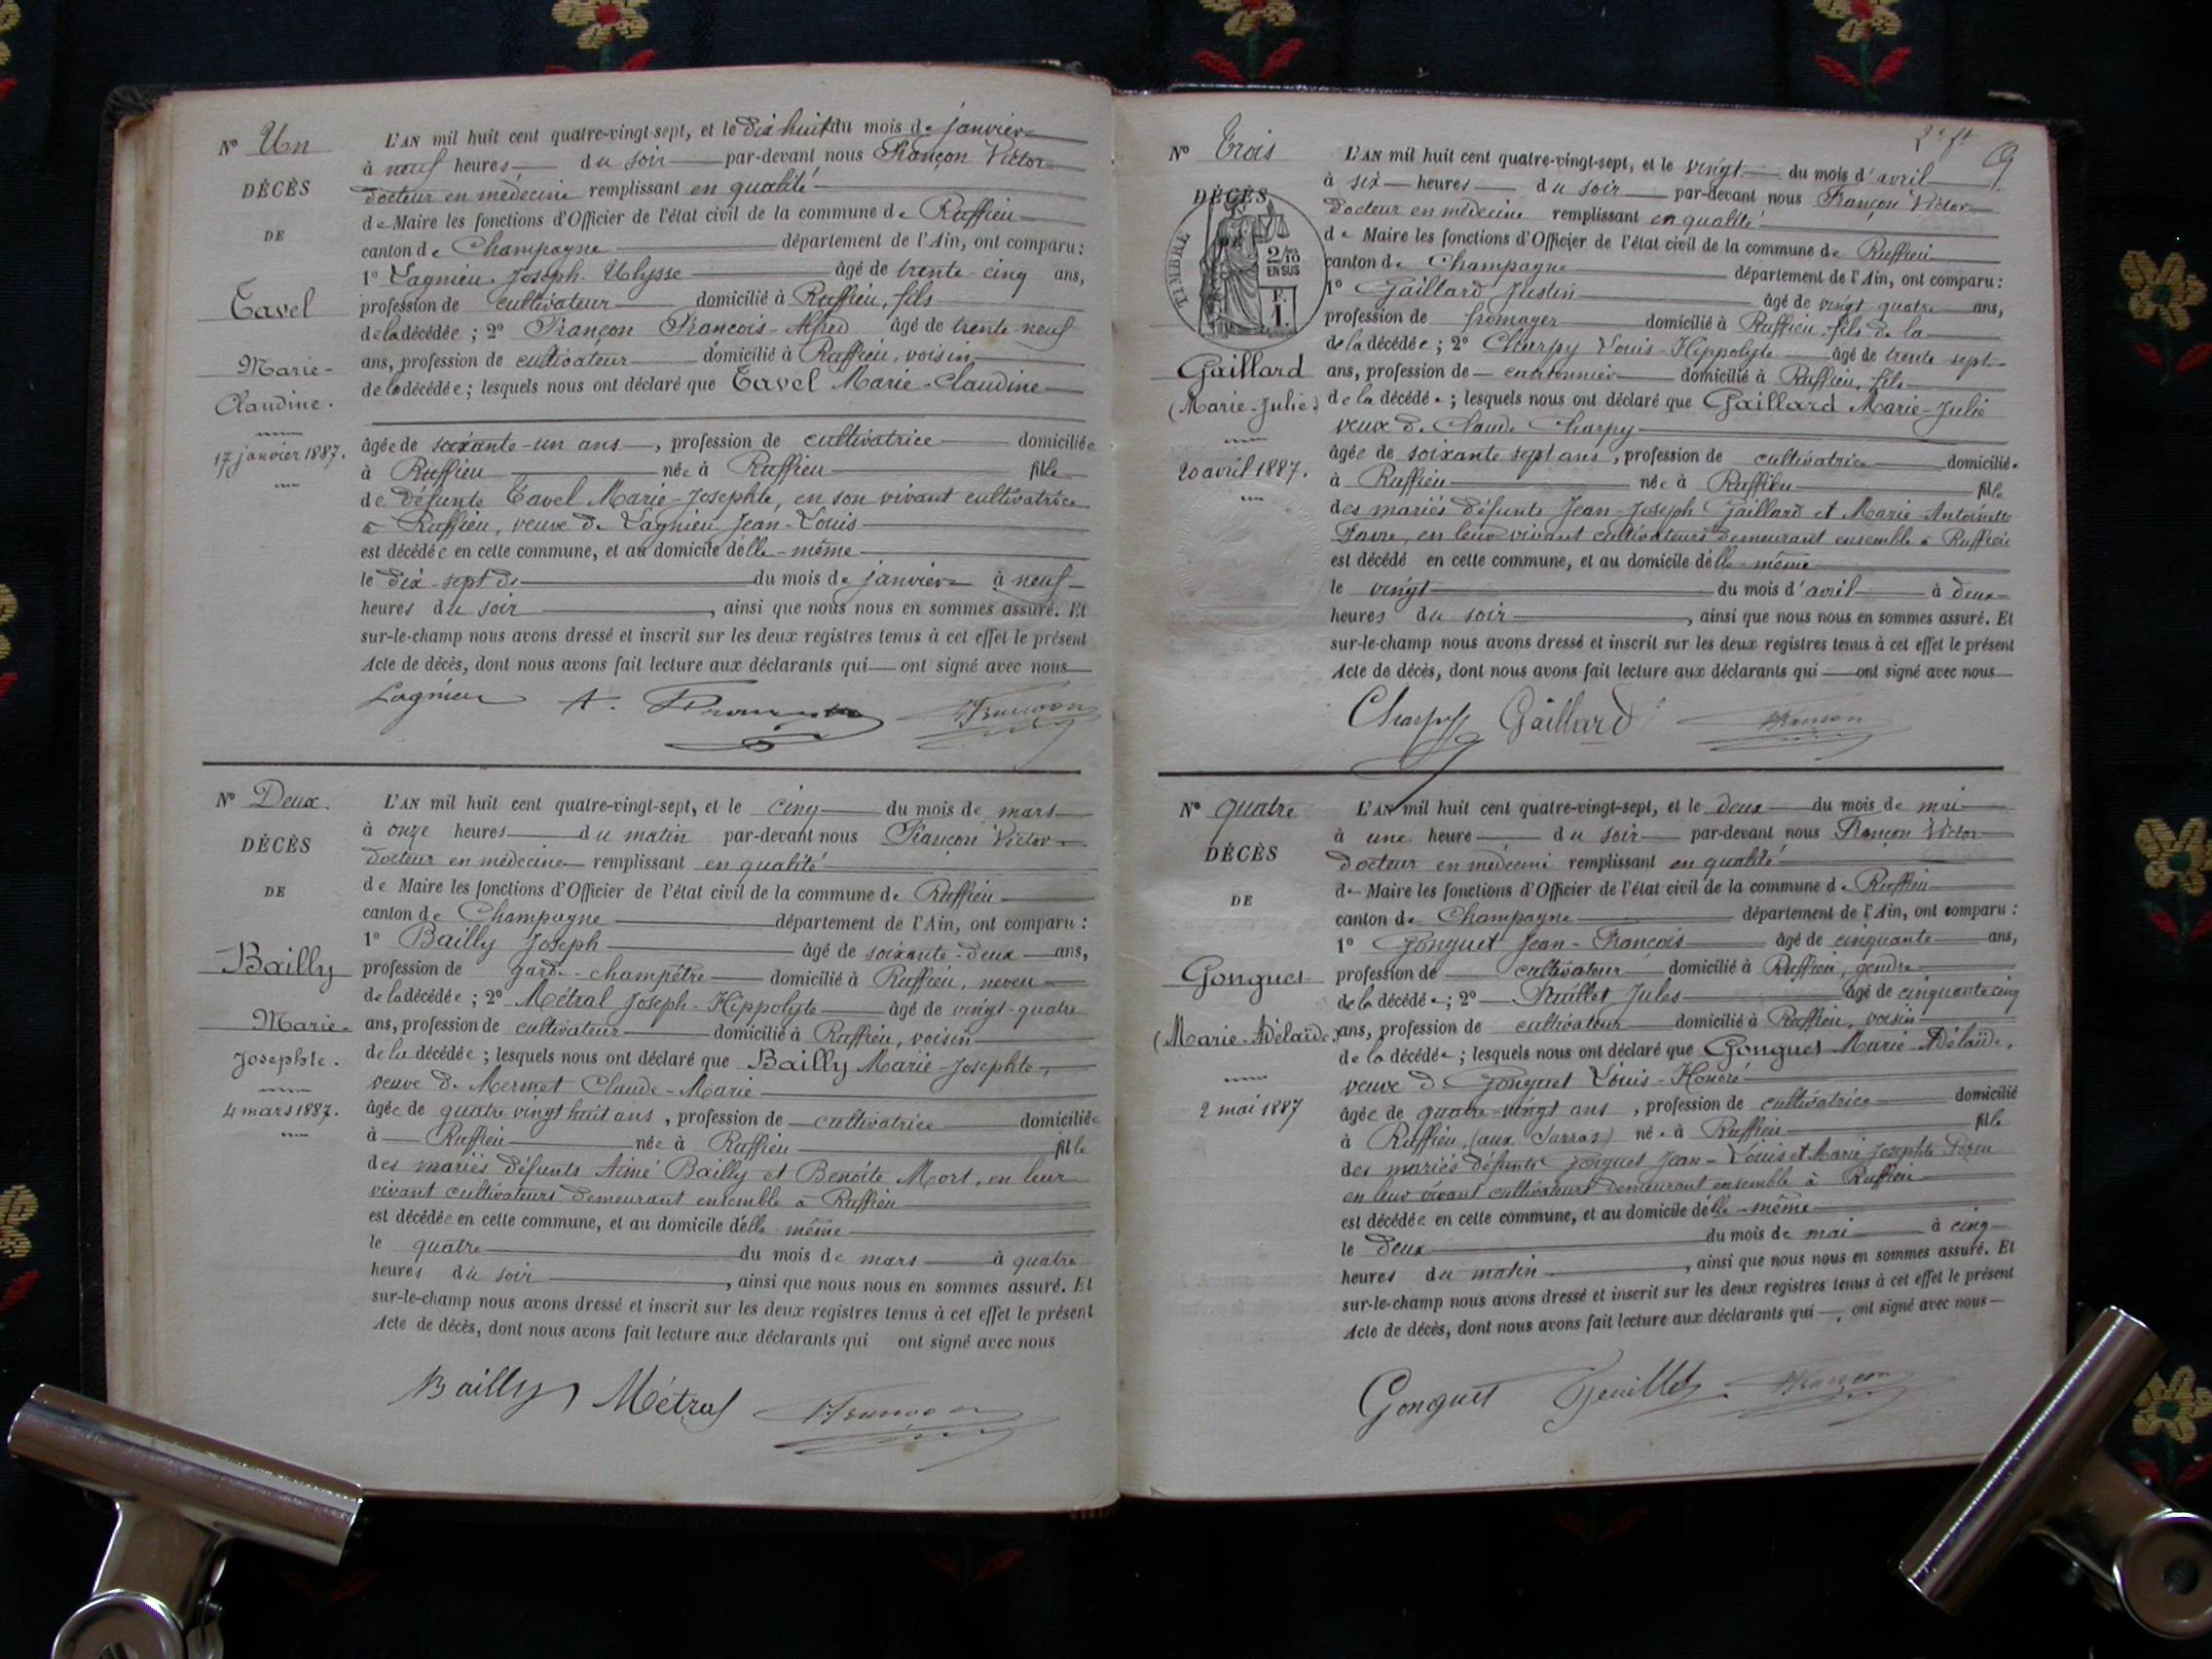 N° Un
DÉCÈS
DE
Tavel
Marie-
Claudine.
17 janvier 1887.
L'AN mil huit cent quatre-vingt-sept, et le dix huit du mois de janvier
à neuf heures du soir par-devant nous Françon Victor
docteur en médecine remplissant en qualité
de Maire les fonctions d'Officier de l'état civil de la commune de Ruffieu
canton de Champagne département de l'Ain, ont comparu :
1° Lagnieu Joseph Ulysse âgé de trente-cinq ans,
profession de cultivateur domicilié à Ruffieu, fils
de la décédée ; 2° Françon François-Alfred âgé de trente neuf
ans, profession de cultivateur domicilié à Ruffieu, voisin
de la décédée ; lesquels nous ont déclaré que Tavel Marie-Claudine
âgée de soixante-un ans, profession de cultivatrice domiciliée
à Ruffieu née à Ruffieu fille
de défunte Tavel Marie-Josephte, en son vivant cultivatrice
à Ruffieu, veuve de Lagnieu Jean-Louis
est décédée en cette commune, et au domicile d'elle-même
le dix-sept de du mois de janvier à neuf
heures du soir, ainsi que nous nous en sommes assuré. Et
sur-le-champ nous avons dressé et inscrit sur les deux registres tenus à cet effet le présent
Acte de décès, dont nous avons fait lecture aux déclarants qui ont signé avec nous
Lagnieu A. Françon Françon
N° Deux.
DÉCÈS
DE
Bailly
Marie-
Josephte.
4 mars 1887.
L'AN mil huit cent quatre-vingt-sept, et le cinq du mois de mars
à onze heures du matin par-devant nous Françon Victor
docteur en médecine remplissant en qualité
de Maire les fonctions d'Officier de l'état civil de la commune de Ruffieu
canton de Champagne département de l'Ain, ont comparu :
1° Bailly Joseph âgé de soixante-deux ans,
profession de garde-champêtre domicilié à Ruffieu, neveu
de la décédée ; 2° Métral Joseph-Hippolyte âgé de vingt-quatre
ans, profession de cultivateur domicilié à Ruffieu, voisin
de la décédée ; lesquels nous ont déclaré que Bailly Marie-Josephte,
veuve de Mermet Claude-Marie
âgée de quatre vingt huit ans, profession de cultivatrice domiciliée
à Ruffieu née à Ruffieu fille
des mariés défunts Aimé Bailly et Benoîte Mort, en leur
vivant cultivateurs demeurant ensemble à Ruffieu
est décédée en cette commune, et au domicile d'elle-même
le quatre du mois de mars à quatre
heures du soir, ainsi que nous nous en sommes assuré. Et
sur-le-champ nous avons dressé et inscrit sur les deux registres tenus à cet effet le présent
Acte de décès, dont nous avons fait lecture aux déclarants qui ont signé avec nous
Bailly Métral Françon
2e ft 9
N° Trois
DÉCÈS
TIMBRE
2/10
EN SUS
F.
1.
Gaillard
(Marie-Julie)
20 avril 1887.
L'AN mil huit cent quatre-vingt-sept, et le vingt du mois d'avril
à six heures du soir par-devant nous Françon Victor
docteur en médecine remplissant en qualité
de Maire les fonctions d'Officier de l'état civil de la commune de Ruffieu
canton de Champagne département de l'Ain, ont comparu :
1° Gaillard Justin âgé de vingt quatre ans,
profession de fromager domicilié à Ruffieu, fils de la
de la décédée ; 2° Charpy Louis-Hippolyte âgé de trente sept
ans, profession de cantonnier domicilié à Ruffieu, fils
de la décédée ; lesquels nous ont déclaré que Gaillard Marie-Julie
veuve de Claude Charpy
âgée de soixante sept ans, profession de cultivatrice domiciliée
à Ruffieu née à Ruffieu fille
des mariés défunts Jean-Joseph Gaillard et Marie Antoinette
Favre, en leur vivant cultivateurs demeurant ensemble à Ruffieu
est décédé en cette commune, et au domicile d'elle-même
le vingt du mois d'avril à deux
heures du soir, ainsi que nous nous en sommes assuré. Et
sur-le-champ nous avons dressé et inscrit sur les deux registres tenus à cet effet le présent
Acte de décès, dont nous avons fait lecture aux déclarants qui ont signé avec nous
Charpy Gaillard Françon
N° quatre
DÉCÈS
DE
Gonguet
(Marie-Adélaïde.)
2 mai 1887
L'AN mil huit cent quatre-vingt-sept, et le deux du mois de mai
à une heure du soir par-devant nous Françon Victor
docteur en médecine remplissant en qualité
de Maire les fonctions d'Officier de l'état civil de la commune de Ruffieu
canton de Champagne département de l'Ain, ont comparu :
1° Gonguet Jean-François âgé de cinquante ans,
profession de cultivateur domicilié à Ruffieu, gendre
de la décédée ; 2° Jules âgé de cinquante cinq
ans, profession de cultivateur domicilié à Ruffieu, voisin
de la décédée ; lesquels nous ont déclaré que Gonguet Marie-Adélaïde,
veuve de Gonguet Louis-Honoré
âgée de quatre-vingt ans, profession de cultivatrice domicilié
à Ruffieu (aux ) née à Ruffieu fille
des mariés défunts Gonguet Jean-Louis et Marie Josephte
en leur vivant cultivateurs demeurant ensemble à Ruffieu
est décédée en cette commune, et au domicile d'elle-même
le deux du mois de mai à cinq
heures du matin, ainsi que nous nous en sommes assuré. Et
sur-le-champ nous avons dressé et inscrit sur les deux registres tenus à cet effet le présent
Acte de décès, dont nous avons fait lecture aux déclarants qui ont signé avec nous
Gonguet Françon